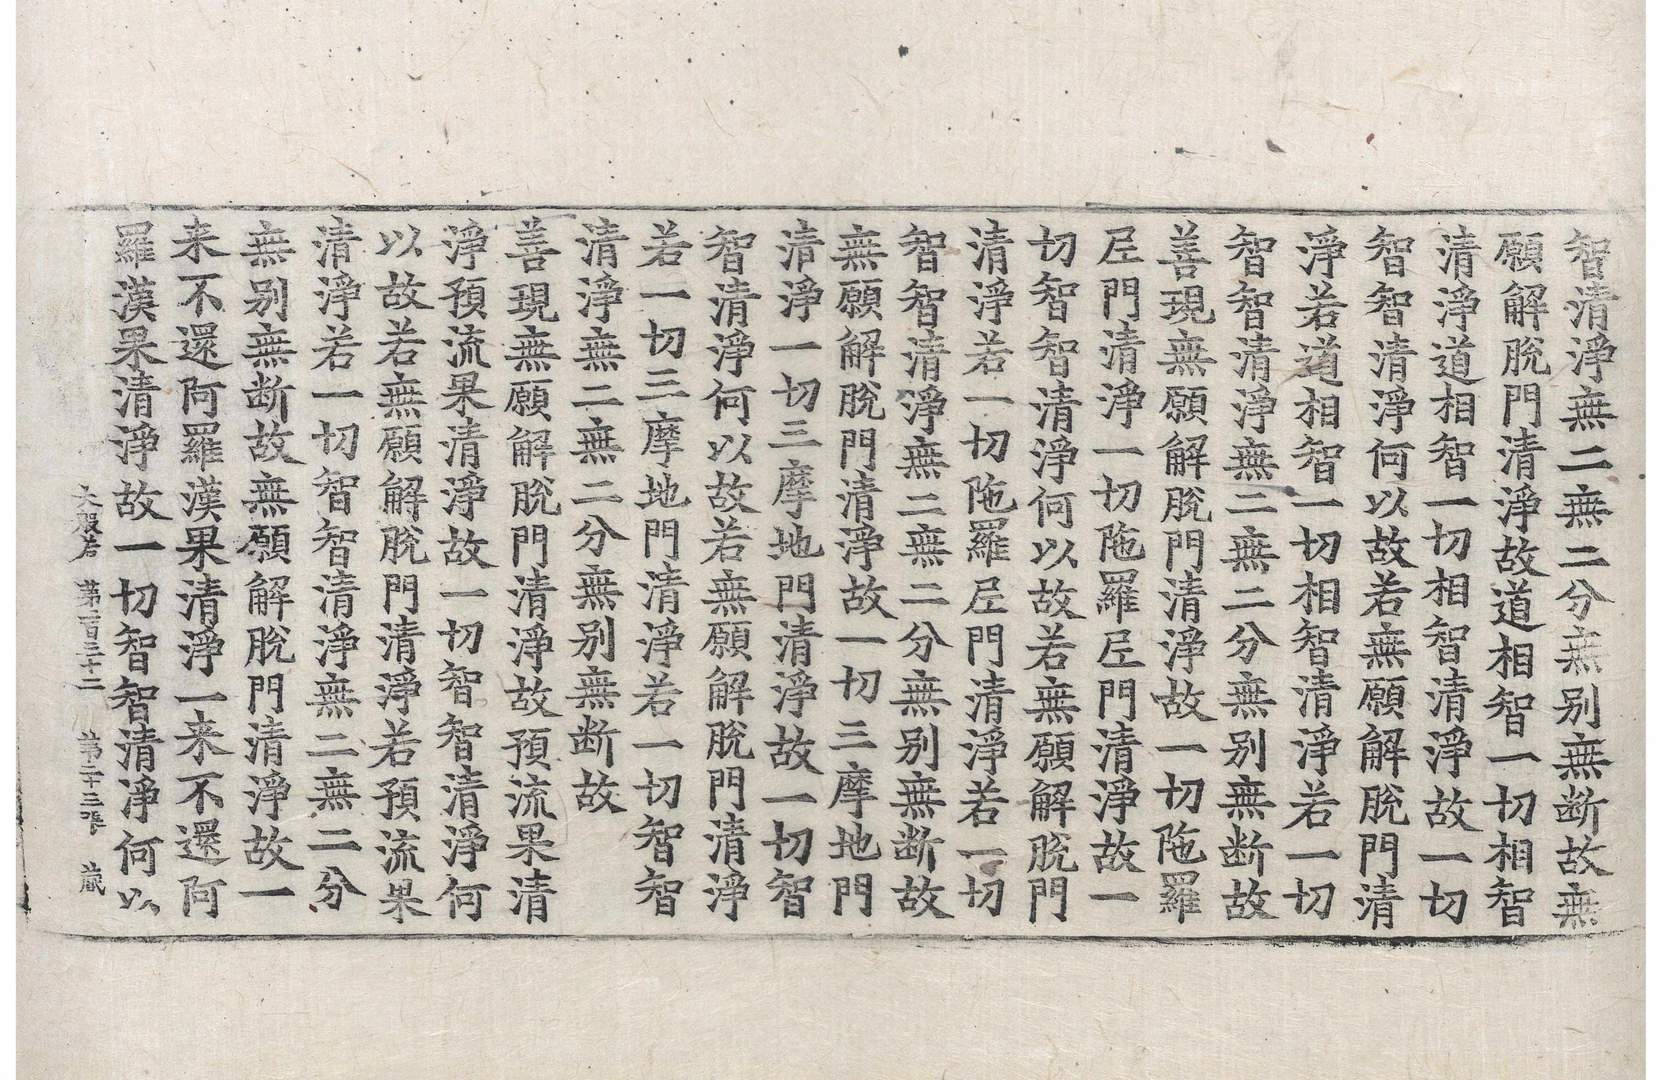 智清淨無二無二分無别無断故無
願解脫門清淨故道相智一切相智
清淨道相智一切相智清淨故一切
智智清淨何以故若無願解脫門清
淨若道相智一切相智清淨若一切
智智清淨無二無二分無别無断故
善現無願解脫門清淨故一切陁羅
𡰱門清淨一切陁羅𡰱門清淨故一
切智智清淨何以故若無願解脫門
清淨若一切陁羅𡰱門清淨若一切
智智清淨無二無二分無别無断故
無願解脫門清淨故一切三摩地門
清淨一切三摩地門清淨故一切智
智清淨何以故若無願解脫門清淨
若一切三摩地門清淨若一切智智
清淨無二無二分無别無断故
善現無願解脫門清淨故預流果清
淨預流果清淨故一切智智清淨何
以故若無願解脫門清淨若預流果
清淨若一切智智清淨無二無二分
無别無断故無願解脫門清淨故一
来不還阿羅漢果清淨一来不還阿
羅漢果清淨故一切智智清淨何以
大般若 第二百三十二 第二十三張 蔵